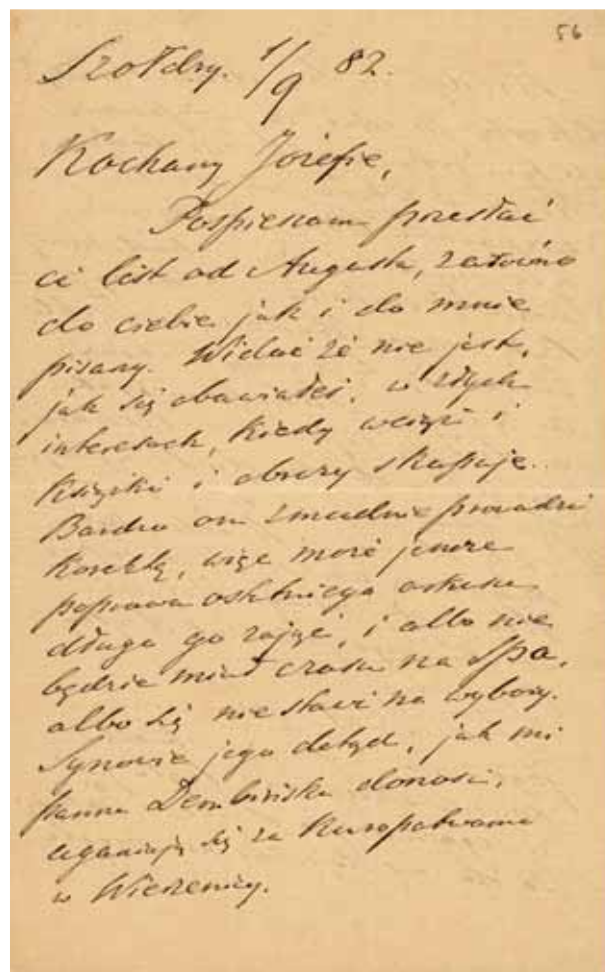 56
Szołdry. 1/9 82.
Kochany Józefie,
Pospieszam przesłać
ci list od Augusta, zarówno
do ciebie jak i do mnie
pisany. Widać że nie jest,
jak się obawiałeś, w złych
interesach, kiedy wciąż i
książki i obrazy skupuje.
Bardzo on żmudnie prowadzi
korektę, więc może jeszcze
poprawa ostatniego arkusza
długo go zająć, i albo nie
będzie miał czasu na Spa,
albo się nie stawi na wybory.
Synowie jego dotąd, jak mi
panna Dembińska donosi,
uganiają się za kuropatwami
w Wierzenicy.